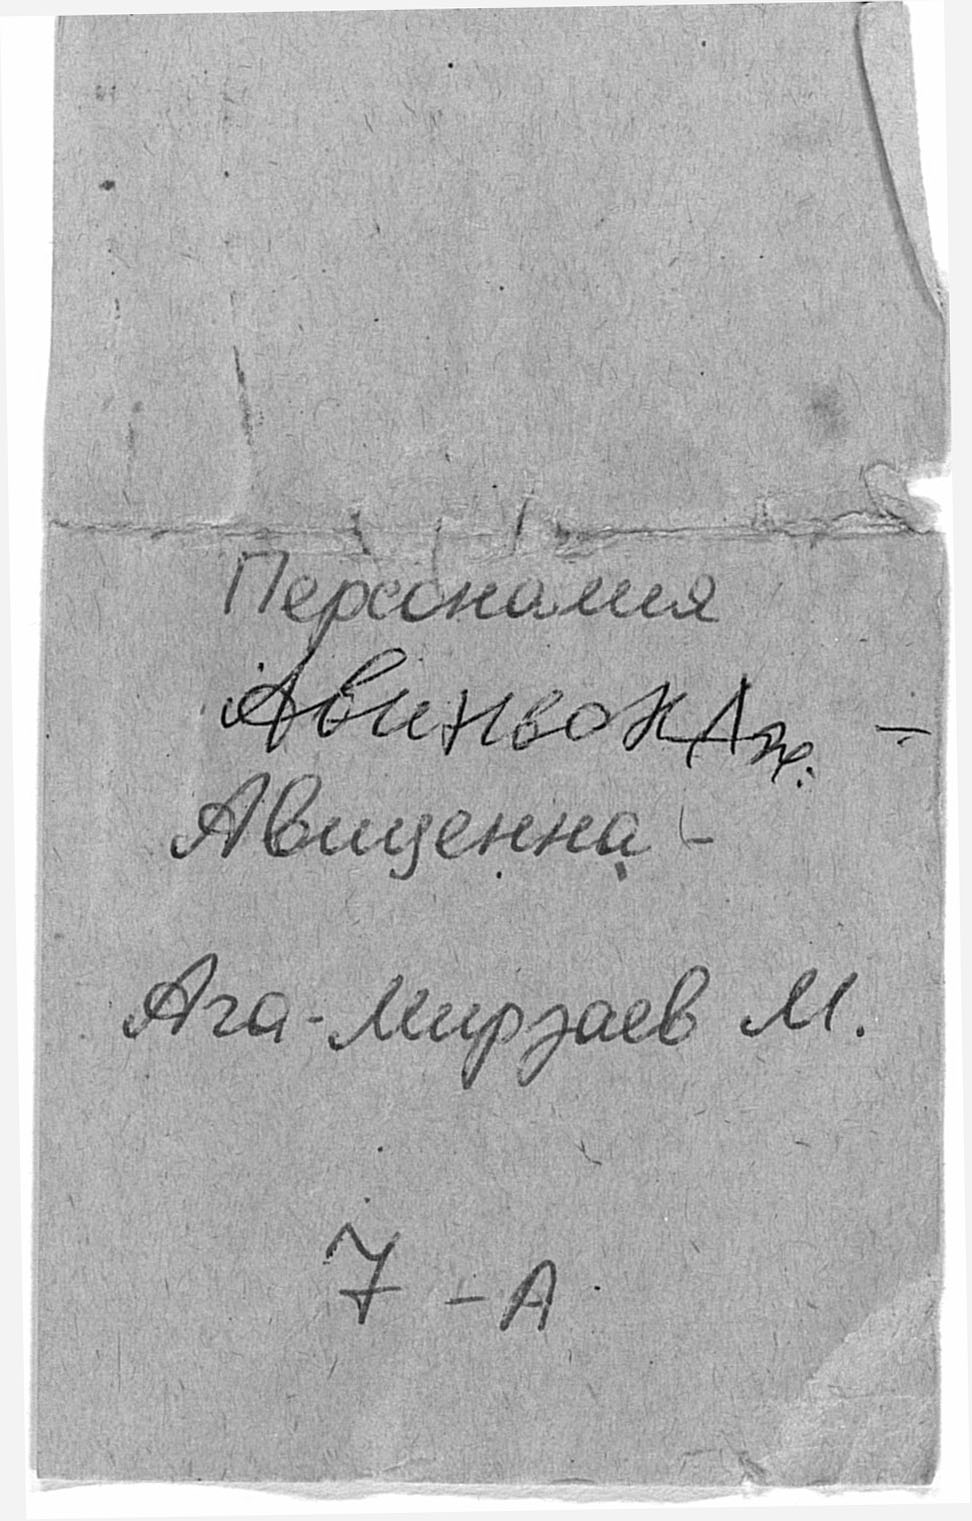 Персоналия
Авинвок Дж. -
Авиценна -
Ага-Мирзаев М.
7 - А